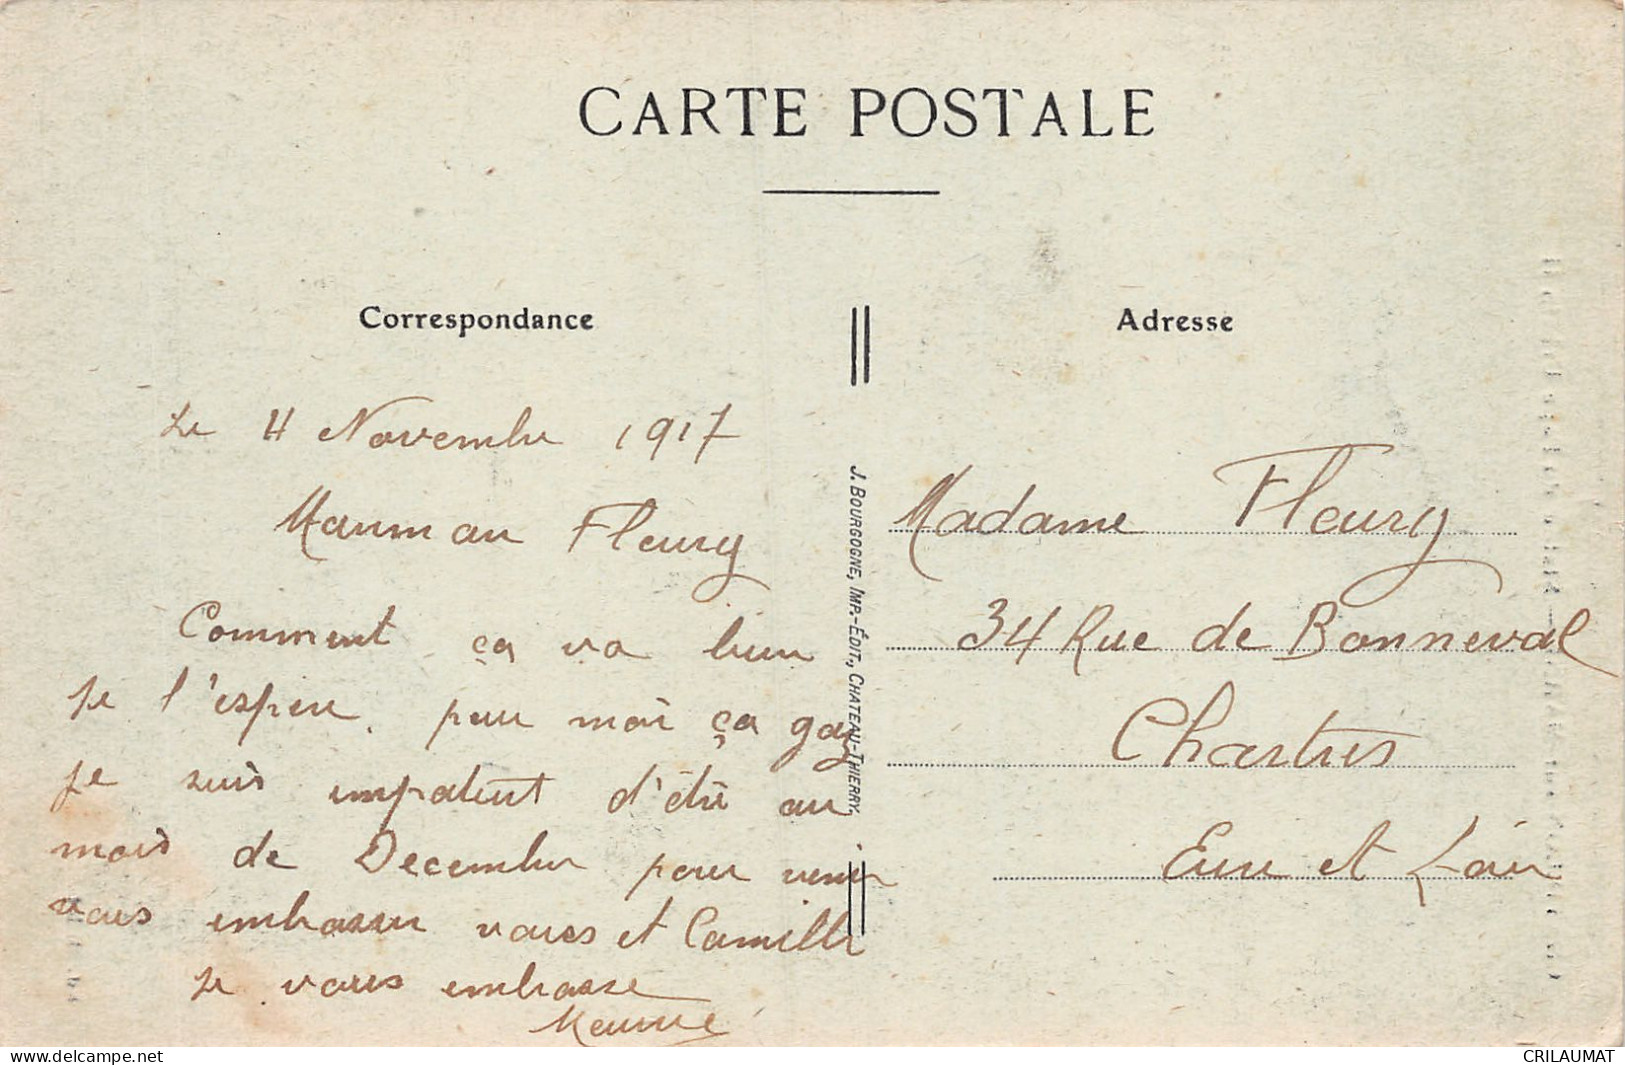 CARTE POSTALE
Correspondance
Le 4 Novembre 1917
Maman Fleury
Comment ça va bien
je l'espère. pour moi ça gaz
je suis impatient d'être au
mois de Decembre pour venir
vous embrasser vous et Camille
Je vous embrasse
J. BOURGOGNE, IMP.-ÉDIT., CHATEAU-THIERRY.
Adresse
Madame Fleury
34 Rue de Bonneval
Chartres
Eure et Loir
www.delcampe.net
CRILAUMAT